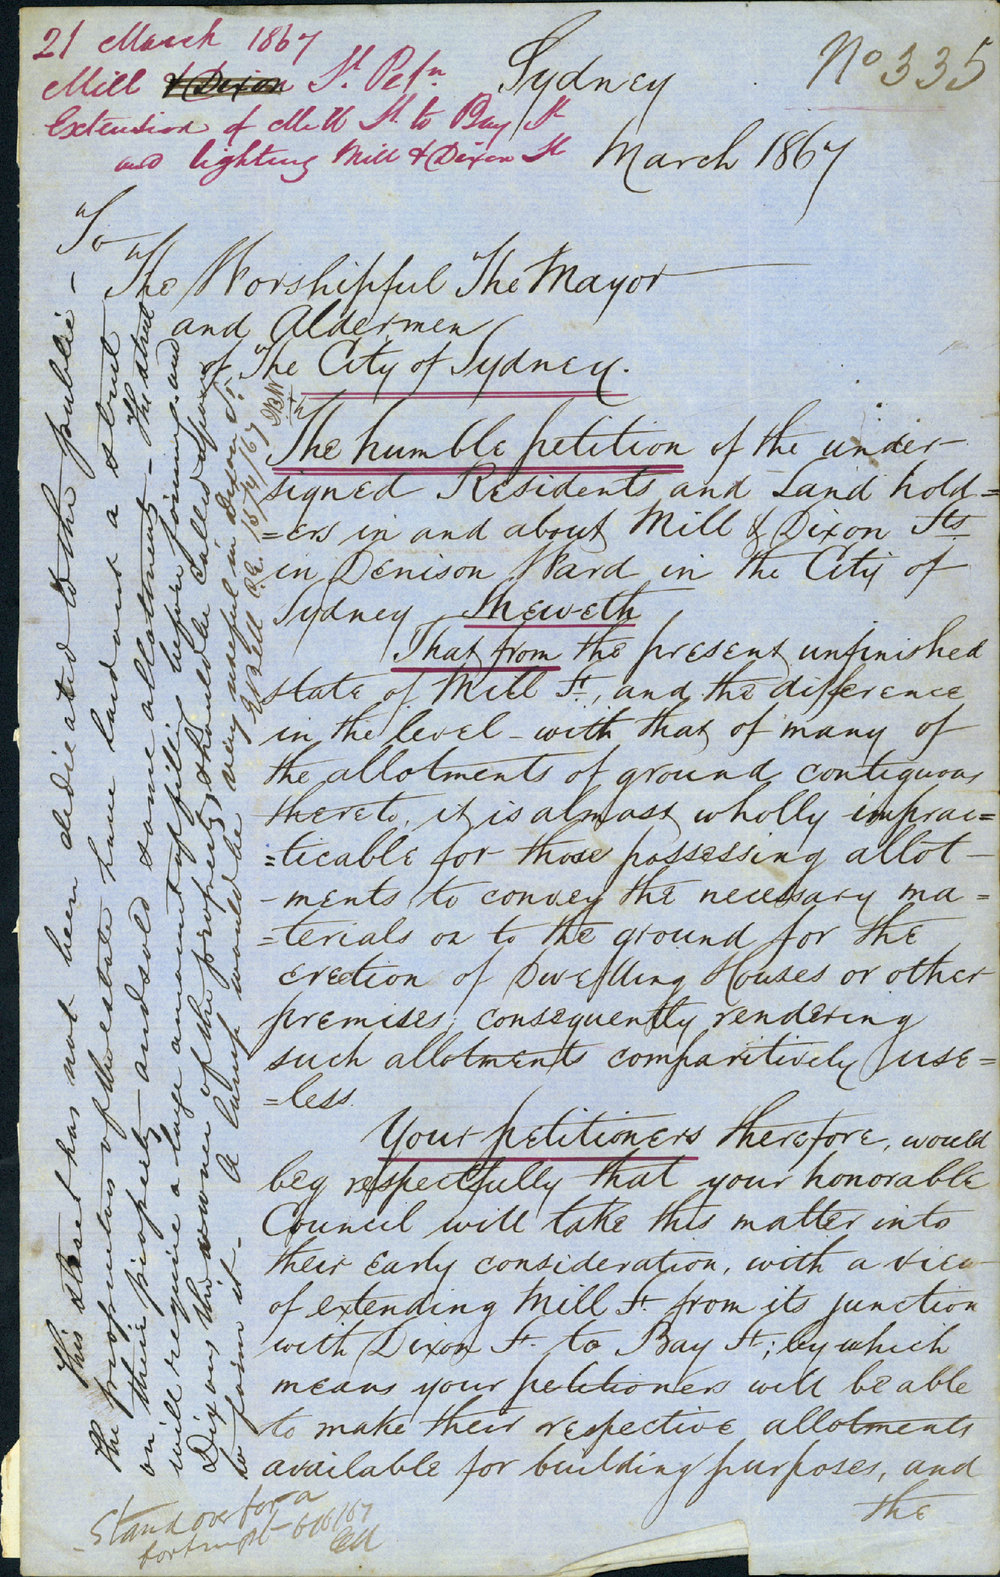 21 March 1867
Mill & Dixon St Petn
Extension of Mill St. to Bay St
and lighting Mill & Dixon St
No 335
Sydney
March 1867
To
The Worshipful The Mayor
and Aldermen
of The City of Sydney.
The humble petition of the under-
signed Residents and Land hold=
=ers in and about Mill & Dixon Sts
in Denison Ward in the City of
Sydney Sheweth
That from the present unfinished
state of Mill St, and the difference
in the level - with that of many of
the allotments of ground contiguous
thereto, it is almost wholly imprac=
=ticable for those possessing allot-
-ments to convey the necessary ma=
=terials on to the ground for the
erection of Dwelling Houses or other
premises; consequently rendering
such allotments comparitively use=
=less.
Your petitioners therefore, would
beg respectfully that your honorable
Council will take this matter into
their early consideration, with a view
of extending Mill St. from its junction
with Dixon St. to Bay St; by which
means your petitioners will be able
to make their respective allotments
available for building purposes, and
the
This street has not been dedicated to the public -
the proprietors of the estate have laid out a street
on their property - and sold some allotments - The street
will require a large amount of filling before forming and
Dixons the owner of the property should be called upon
to form it - A lamp would be very useful in Dixon St.
E Bell C.E. 15/4/67
Stand over for a
6/6/67